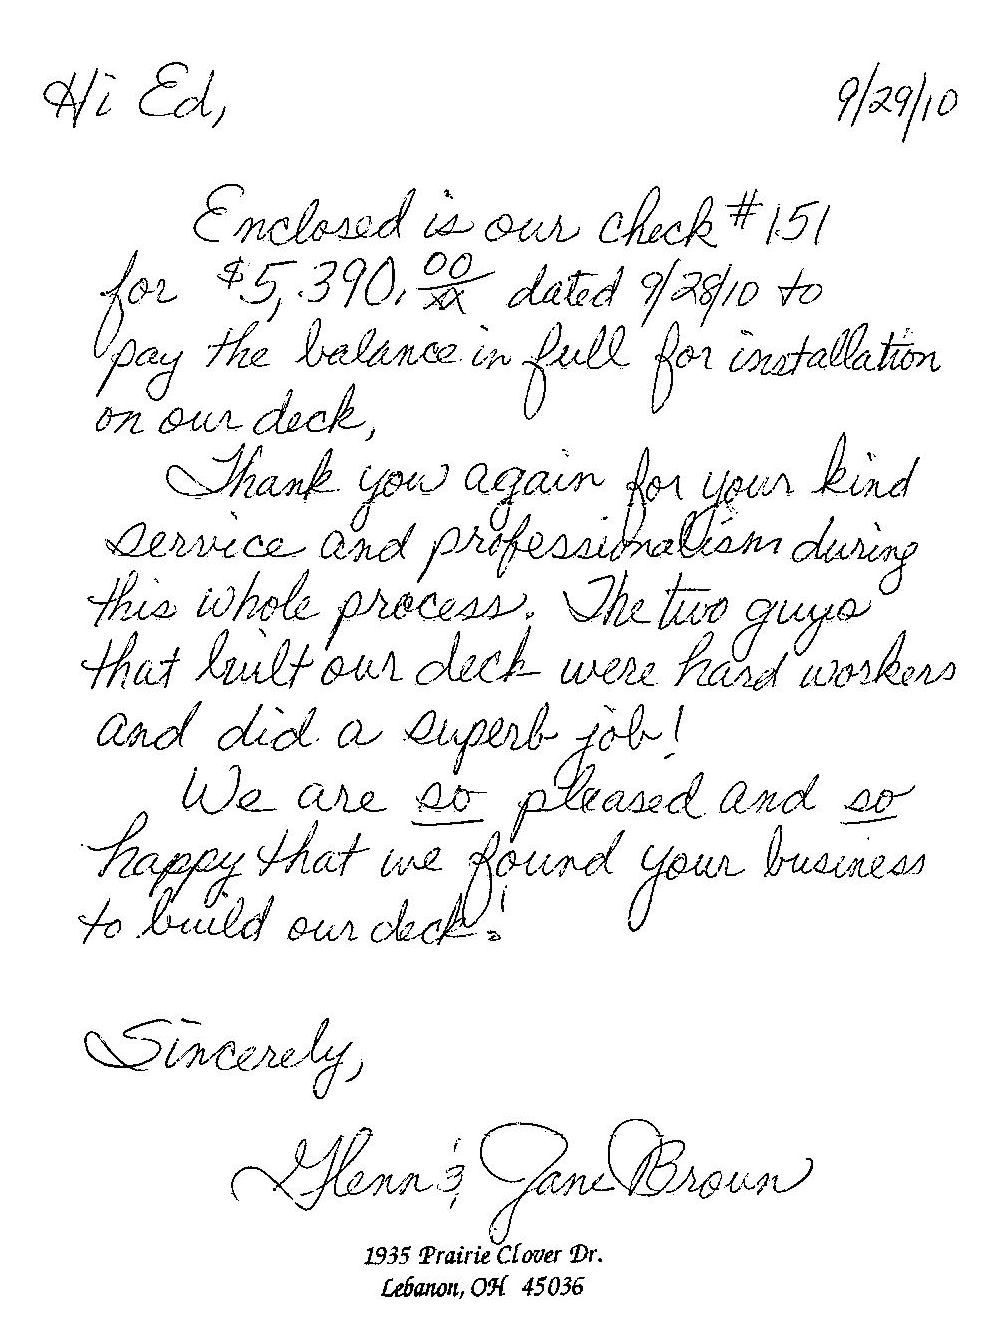 Hi Ed,
9/29/10
Enclosed is our check #151
for $5,390.00/xx dated 9/28/10 to
pay the balance in full for installation
on our deck,
Thank you again for your kind
service and professionalism during
this whole process. The two guys
that built our deck were hard workers
and did a superb job!
We are so pleased and so
happy that we found your business
to build our deck!
Sincerely,
Glenn & Jane Brown
1935 Prairie Clover Dr.
Lebanon, OH 45036